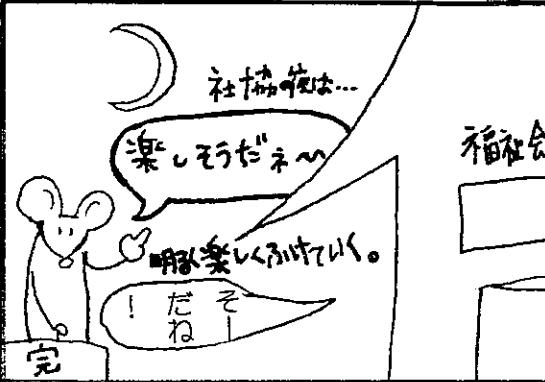 社協の夜は…
楽しそうだネ〜
福祉会
明るく楽しくふけていく。
そーだね!
完